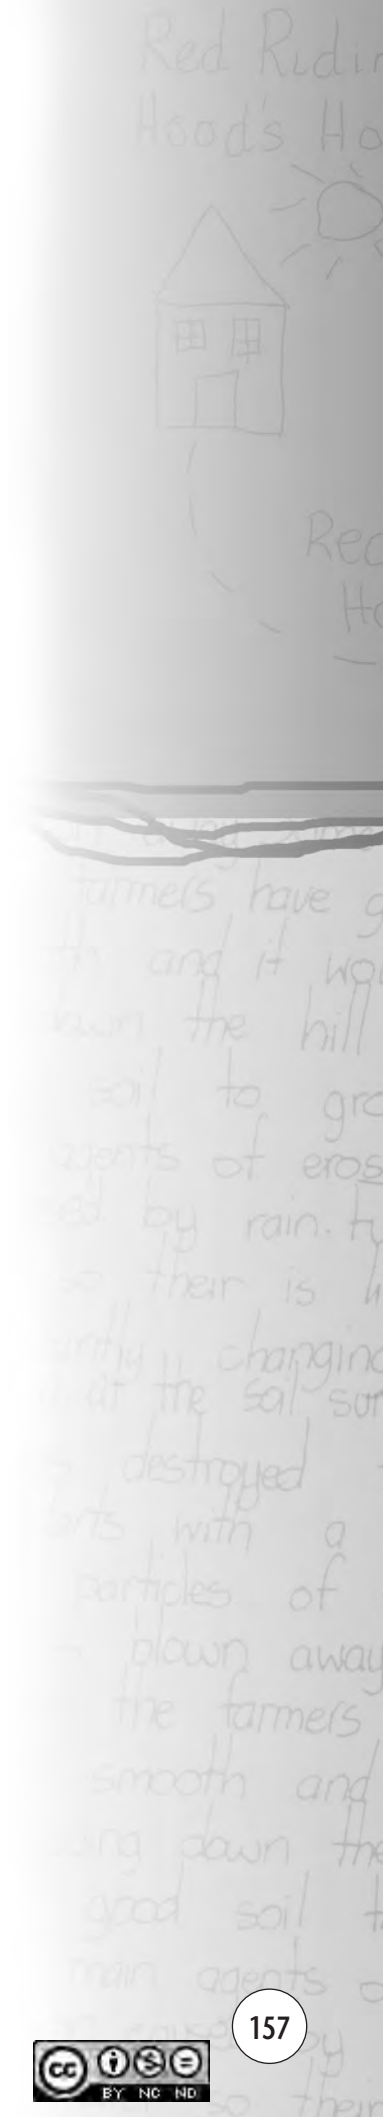 Red Ridin
Hood's Ho
Red
Ho
farmers have g
and it wou
down the hill
soil to gro
agents of eros
by rain.
their is
changing
at the soil sur
destroyed
with a
particles of
blown away
the farmers
smooth and
down the
good soil
main agents o
157
by
so their
cc
BY NC ND